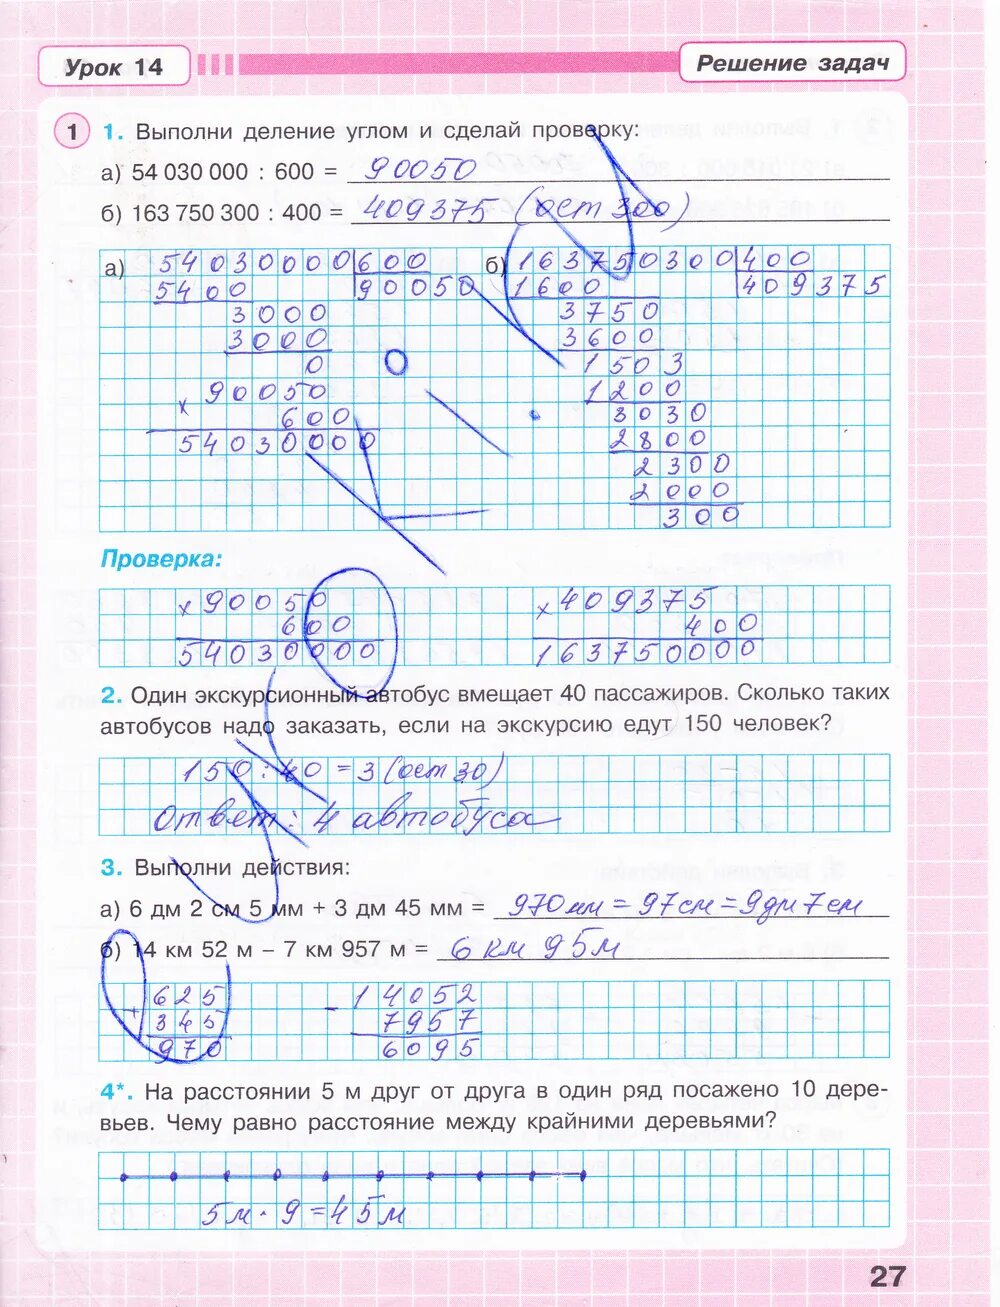 Урок 14
Решение задач
1 1. Выполни деление углом и сделай проверку:
а) 54 030 000 : 600 = 90050
б) 163 750 300 : 400 = 409375 (ост 300)
а) 54030000 600
5400 90050
3000
3000
0
× 90050
600
54030000
б) 163750300 400
1600 409375
3750
3600
1503
1200
3030
2800
2300
2000
300
Проверка:
× 90050
600
54030000
× 409375
400
163750000
2. Один экскурсионный автобус вмещает 40 пассажиров. Сколько таких
автобусов надо заказать, если на экскурсию едут 150 человек?
150 : 40 = 3 (ост 30)
Ответ: 4 автобуса
3. Выполни действия:
а) 6 дм 2 см 5 мм + 3 дм 45 мм = 970 мм = 97 см = 9 дм 7 см
б) 14 км 52 м – 7 км 957 м = 6 км 95 м
+ 625
345
970
– 14052
7957
6095
4*. На расстоянии 5 м друг от друга в один ряд посажено 10 дере-
вьев. Чему равно расстояние между крайними деревьями?
5 м · 9 = 45 м
27